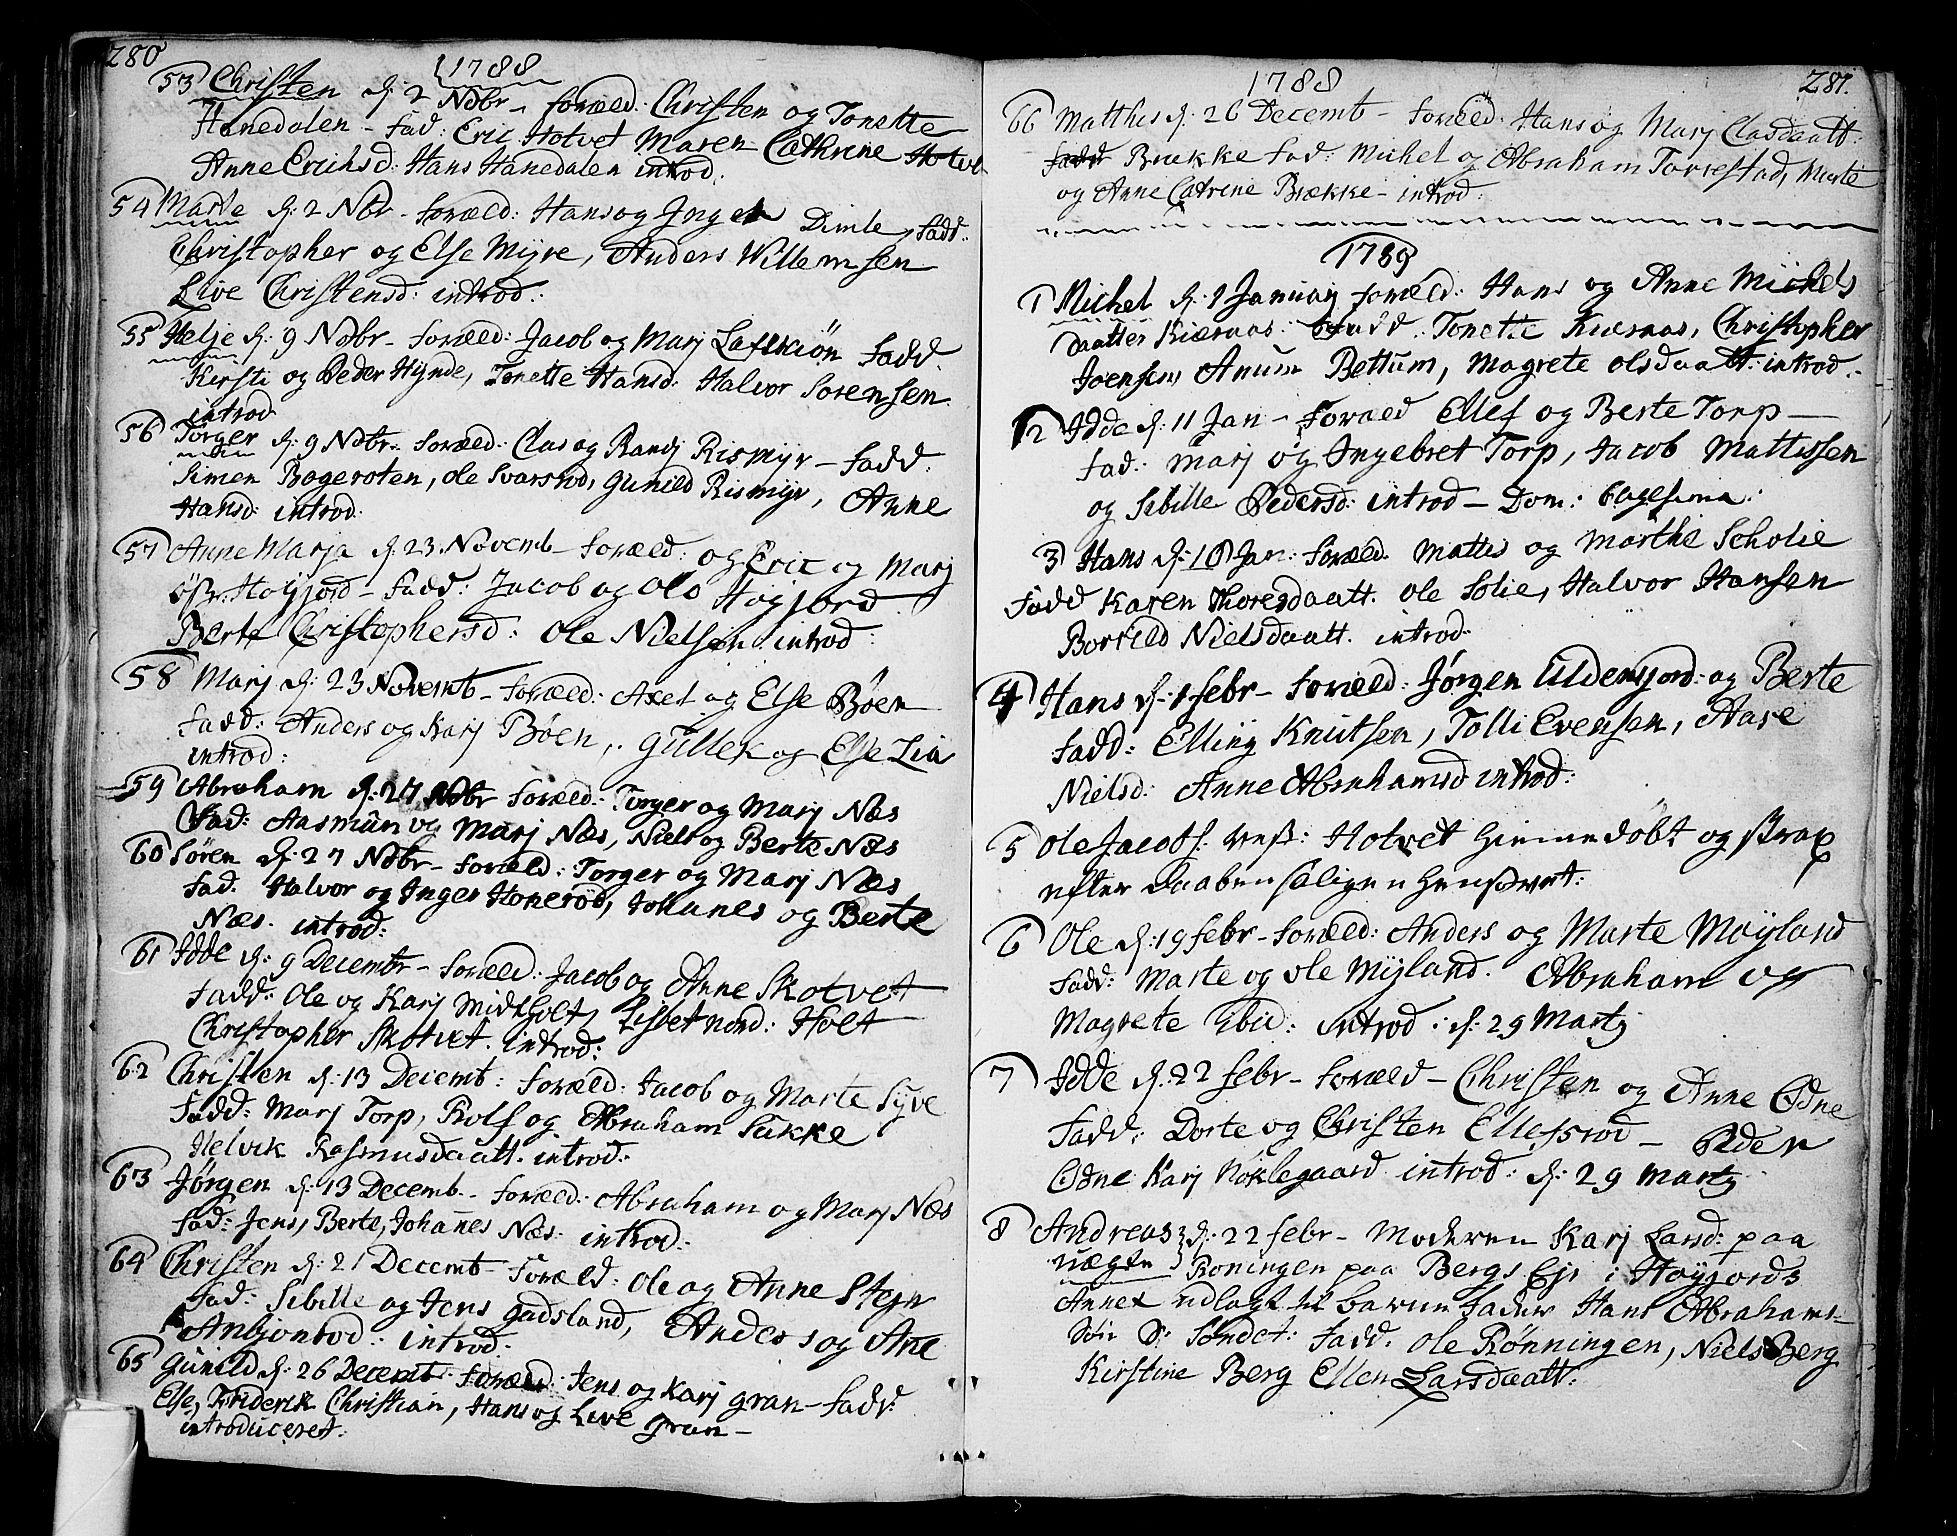 280
1788
53 Christen d. 2 Nobr – foræld: Christen og Tonette
Hanedalen – fad: Eric Hotvet Maren Cathrine Hotvet
Anne Erichsd: Hans Hanedalen introd.
54 Marte d. 2 Nobr – foræld: Hans og Inger Dimle, fadd:
Christopher og Else Myre, Anders Willemsen
Live Christensd: introd:
55 Helje d. 9 Nobr – foræld: Jacob og Marj fadd
Kirsti og Peder Hynde, Tonette Hansd: Halvor Sorensen
introd
56 Torger d. 9 Nobr – foræld: Clas og Randj Rismyr – fadd:
Simen Bogeroten, Ole Svarstod, Gunild Rismyr, Anne
Hansd: introd:
57 Anne Marja d. 23 Novemb – foræld: og Eric og Marj
Høyjord – fadd: Jacob og Ole Høgjord
Berte Christophersd: Ole Nielsen introd:
58 Marj d. 23 Novemt – foræld: Axel og Else Bøen
fadd: Anders og Karj Bøen, Gullek og Else Lia
introd:
59 Abraham d. 27 Nobr foræld: Torger og Marj Næs
fad: Aasmun og Marj Næs, Niels og Berte Næs
60 Søren d. 27 Nobr – foræld: Torger og Marj Næs
fad. Halvor og Inger Honerød, Johanes og Berte
Næs. introd:
61 Idde d. 9 Decembr – foræld: Jacob og Anne Skotvet
fadd: Ole og Karj Midtholt, Lisset nord: Holt
Christopher Skotvet. introd:
62 Christen d. 13 Decemt: foræld: Jacob og Marte Syve
fadd: Marj Torp, Rolf og Abraham Sukke
Helvik Rasmusdaatt. introd:
63 Jørgen d. 13 Decemb. – foræld: Abraham og Marj Næs
fad: Jens, Berte, Johañes Næs: introd:
64 Christen d. 21 Decemt – foræld: Ole og Anne Stejn
fad: Sibille og Jens Gadsland, Andes og Ane
Anbjonrod: introd:
65 Gunild d. 26 Decemt: foræld: Jens og Karj gran – fadd:
Else, Friderik Christian, Hans og Live gran –
introduceret:
1788
281.
66 Matthis d. 26 Decemt – foræld: Hans og Marj Clasdaatt:
Brække fad: Michel og Abraham Torrestad, Marte
og Anne Catrine Brække – introd:
1789
1 Michel d. 1 Januarj foræld: Hans og Anne Michels
daatter Kiæraas: fadd: Tonette Kiæraas, Christopher
Joensen Anum Bettum, Magrete Olsdaatt: introd:
2 Idde d. 11 Jan – foræld Ellef og Berte Torp –
fad: Marj og Ingebret Torp, Jacob Mattissen
og Sibille Pedersd: introd – Dom:
3 Hans d. 18 Jan: foræld. Mattis og Marthe Scholie
fadd Karen Thoresdaatt. Ole Solie, Halvor Hansen
Borrild Nielsdaatt. introd:
4 Hans d. 1 febr – foræld: Jørgen Uldensjord: og Berte
fadd: Elling Knutsen, Tolli Evensen, Aase
Nielsd: Anne Abrahamsd introd:
5 Ole Jacobs. Hotvet hiemmedøbt og strax
efter Daaben saligen hensovet:
6 Ole d. 19 febr – foræld: Anders og Marte Moyland
fadd: Marte og Ole Myland. Abraham og
Magrete introd: d. 29 Martj
7 Idde d. 22 febr – foræld – Christen og Anne Odne
fadd: Dorte og Christen Ellefsrod – Peder
Odne Karj Nøklegaard introd: d. 29 Martj
8 Andreas d. 22 febr – Moderen Karj Larsd: paa
uægte Roningen paa Bergs Ejr i Høyjords
Annex udlagt til barnefader Hans Abrahams
Søn fadd: Ole Rønningen, Niels Berg
Kirstine Berg Ellen Larsdaatt: